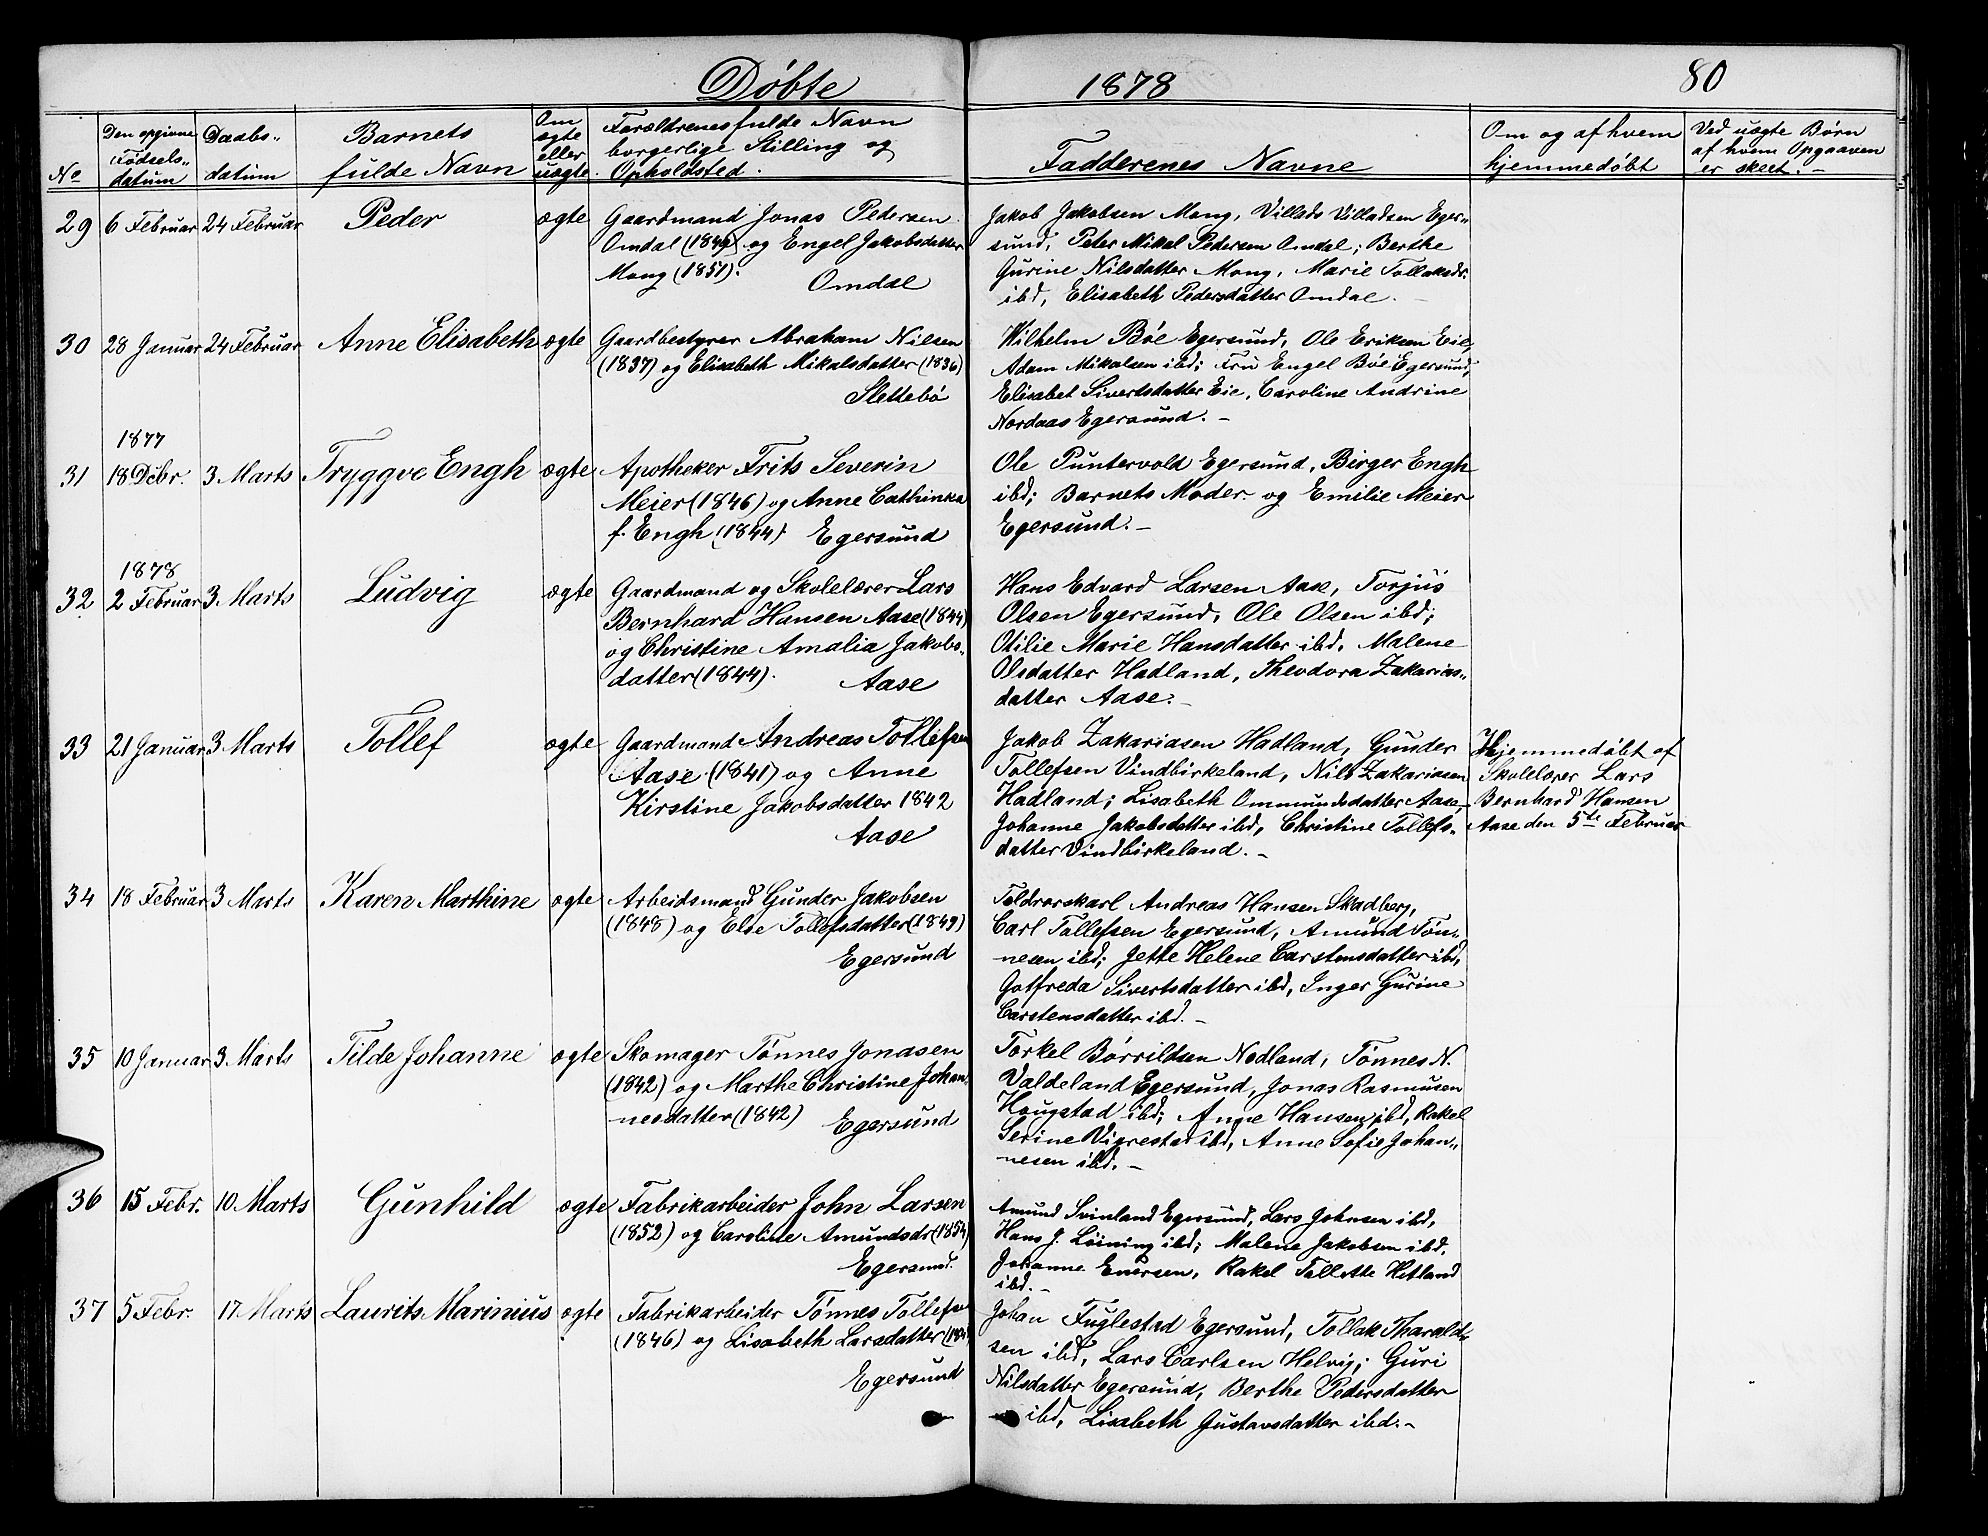 Døbte 1878 80
No
Den opgivne Fødsels-datum
Daabs-datum
Barnets fulde Navn
Om ægte eller uægte.
Forældrenes fulde Navn borgerlige Stilling og Opholdsted.
Fadderenes Navne
Om og af hvem hjemmedøbt
Ved uægte Børn af hvem Opgaaven er skeet.-
29 6 Februar 24 Februar Peder ægte
Gaardmand Jonas Pedersen
Omdal (1849) og Engel Jakobsdatter
Mong (1851).
Omdal
Jakob Jakobsen Mong, Villads Villadsen Eger-
sund, Peter Mikal Pedersen Omdal; Berthe
Gurine Nilsdatter Mong, Marie Tollaksdr.
ibd, Elisabeth Pedersdatter Omdal.-
30 28 Januar 24 Februar Anne Elisabeth ægte
Gaardbestyrer Abraham Nilsen
(1837) og Elisabeth Mikalsdatter (1836)
Slettebø
Wilhelm Bøe Egersund, Ole Eriksen Eie,
Adam Mikalsen ibd; Fru Engel Bøe Egersund,
Elisabet Sivertsdatter Eie, Caroline Andrine
Nordaas Egersund.-
1877
31 18 Dcbr. 3 Marts Tryggve Engh ægte
Apotheker Frits Severin
Meier (1846) og Anne Cathinka
f. Engh (1844). Egersund
Ole Puntervold Egersund, Birger Engh
ibd; Barnets Moder og Emilie Meier
Egersund.-
1878
32 2 Februar 3 Marts Ludvig ægte
Gaardmand og Skolelærer Lars
Bernhard Hansen Aase (1844)
og Christine Amalia Jakobs-
datter (1844).
Aase
Hans Edvard Larsen Aase, Torjus
Olsen Egersund, Ole Olsen ibd;
Otilie Marie Hansdatter ibd, Malene
Olsdatter Hadland, Theodora Zakarias-
datter Aase.-
33 21 Januar 3 Marts Tollef ægte
Gaardmand Andreas Tollefsen
Aase (1841) og Anne
Kirstine Jakobsdatter 1842
Aase
Jakob Zakariasen Hadland, Gunder
Tollefsen Vindbirkeland, Nils Zakariasen
Hadland; Lisabeth Ommundsdatter Aase,
Johanne Jakobsdatter ibd, Christine Tollefs-
datter Vindbirkeland.-
Hjemmedøbt af
Skolelærer Lars
Bernhard Hansen
Aase den 5te Februar
34 18 Februar 3 Marts Karen Marthine ægte
Arbeidsmand Gunder Jakobsen
(1848) og Else Tollefsdatter (1849)
Egersund
Toldrorskarl Andreas Hansen Skadberg,
Carl Tollefsen Egersund, Amund Tøn-
nesen ibd; Jette Helene Carstensdatter ibd,
Gotfreda Sivertsdatter ibd, Inger Gurine
Carstensdatter ibd.-
35 10 Januar 3 Marts Tilde Johanne ægte
Skomager Tønnes Jonasen
(1842) og Marthe Christine Johan-
nesdatter (1842)
Egersund
Torkel Børrildsen Nodland, Tønnes N.
Valdeland Egersund, Jonas Rasmusen
Hougstad ibd; Anne Hansen ibd, Rakel
Serine Vigrestad ibd, Anne Sofie Johan-
nesen ibd.-
36 15 Febr. 10 Marts Gunhild ægte
Fabrikarbeider John Larsen
(1852) og Caroline Amundsdr (1854)
Egersund.
Amund Svinland Egersund, Lars Johnsen ibd,
Hans J. Løining ibd; Malene Jakobsen ibd,
Johanne Enersen, Rakel Tollette Hetland
ibd.-
37 5 Febr. 17 Marts Laurits Marinius ægte
Fabrikarbeider Tønnes Tollefsen
(1846) og Lisabeth Larsdatter
Egersund
Johan Fuglestad Egersund, Tollak Tharald-
sen ibd, Lars Carlsen Helvig; Guri
Nilsdatter Egersund, Berthe Pedersdatter
ibd, Lisabeth Gustavsdatter ibd.-